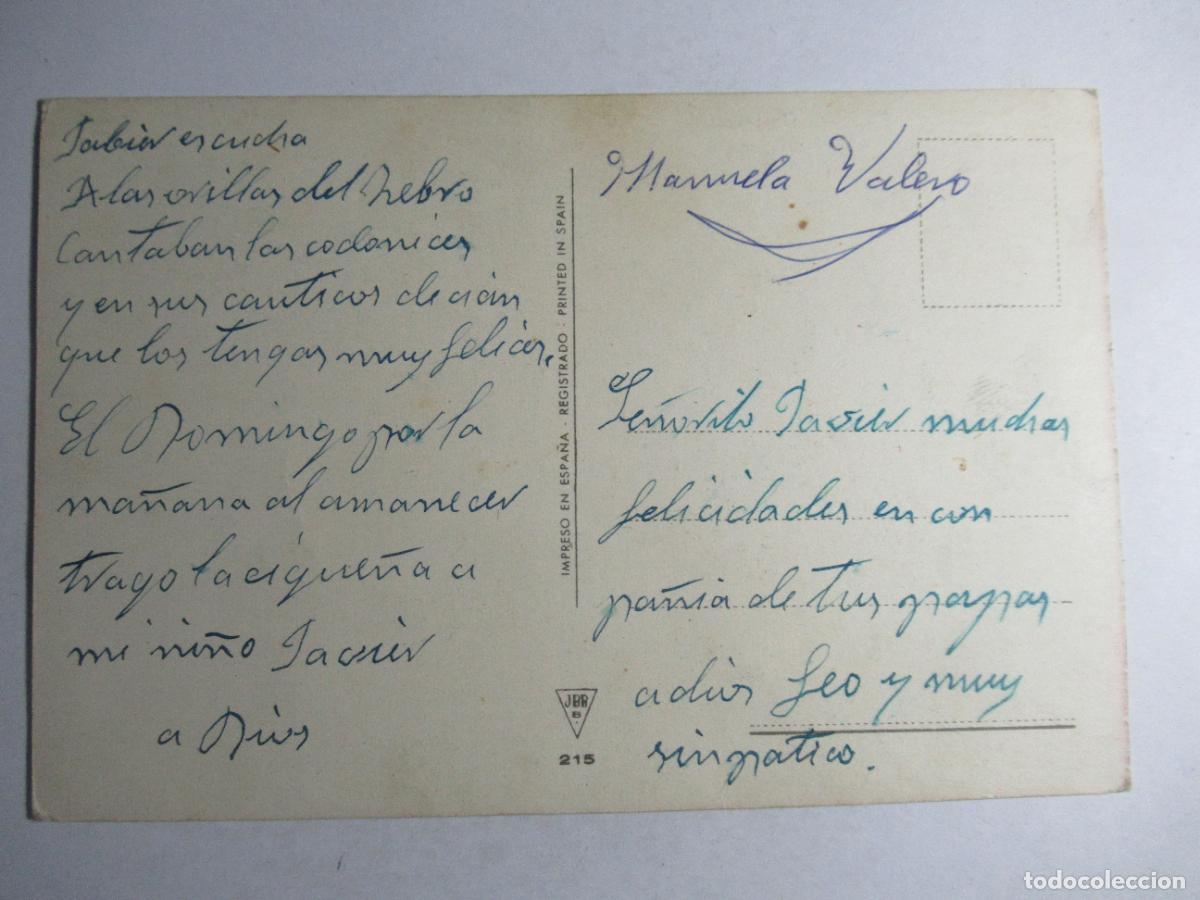 Jabier escucha
A las orillas del hebro
Cantaban las codonices
y en sus canticos decian
que los tengas muy felices.
El Domingo por la
mañana al amanecer
trago la cigueña a
mi niño Javier
a Dios
IMPRESO EN ESPAÑA - REGISTRADO - PRINTED IN SPAIN
JBR
B.
215
Manuela Valero
Señorito Javier muchas
felicidades en con
pañia de tus papas
adios feo y muy
sinpatico.
todocoleccion